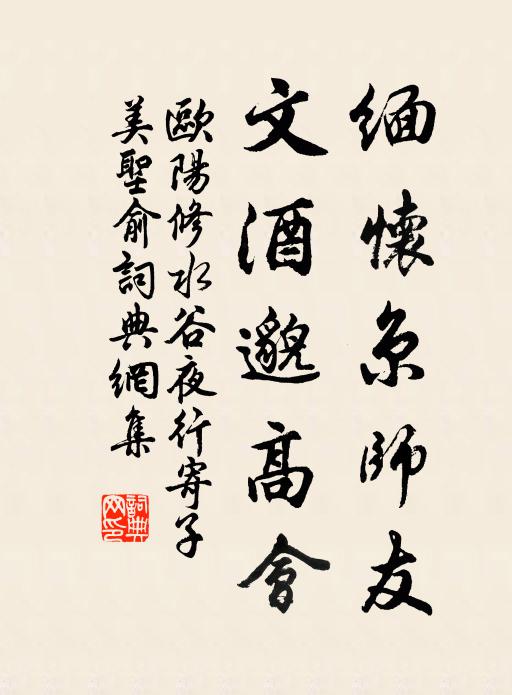 緬懷京師友
文酒邈高會
歐陽修水谷夜行寄子
美聖俞詞典網集
詞典
网印